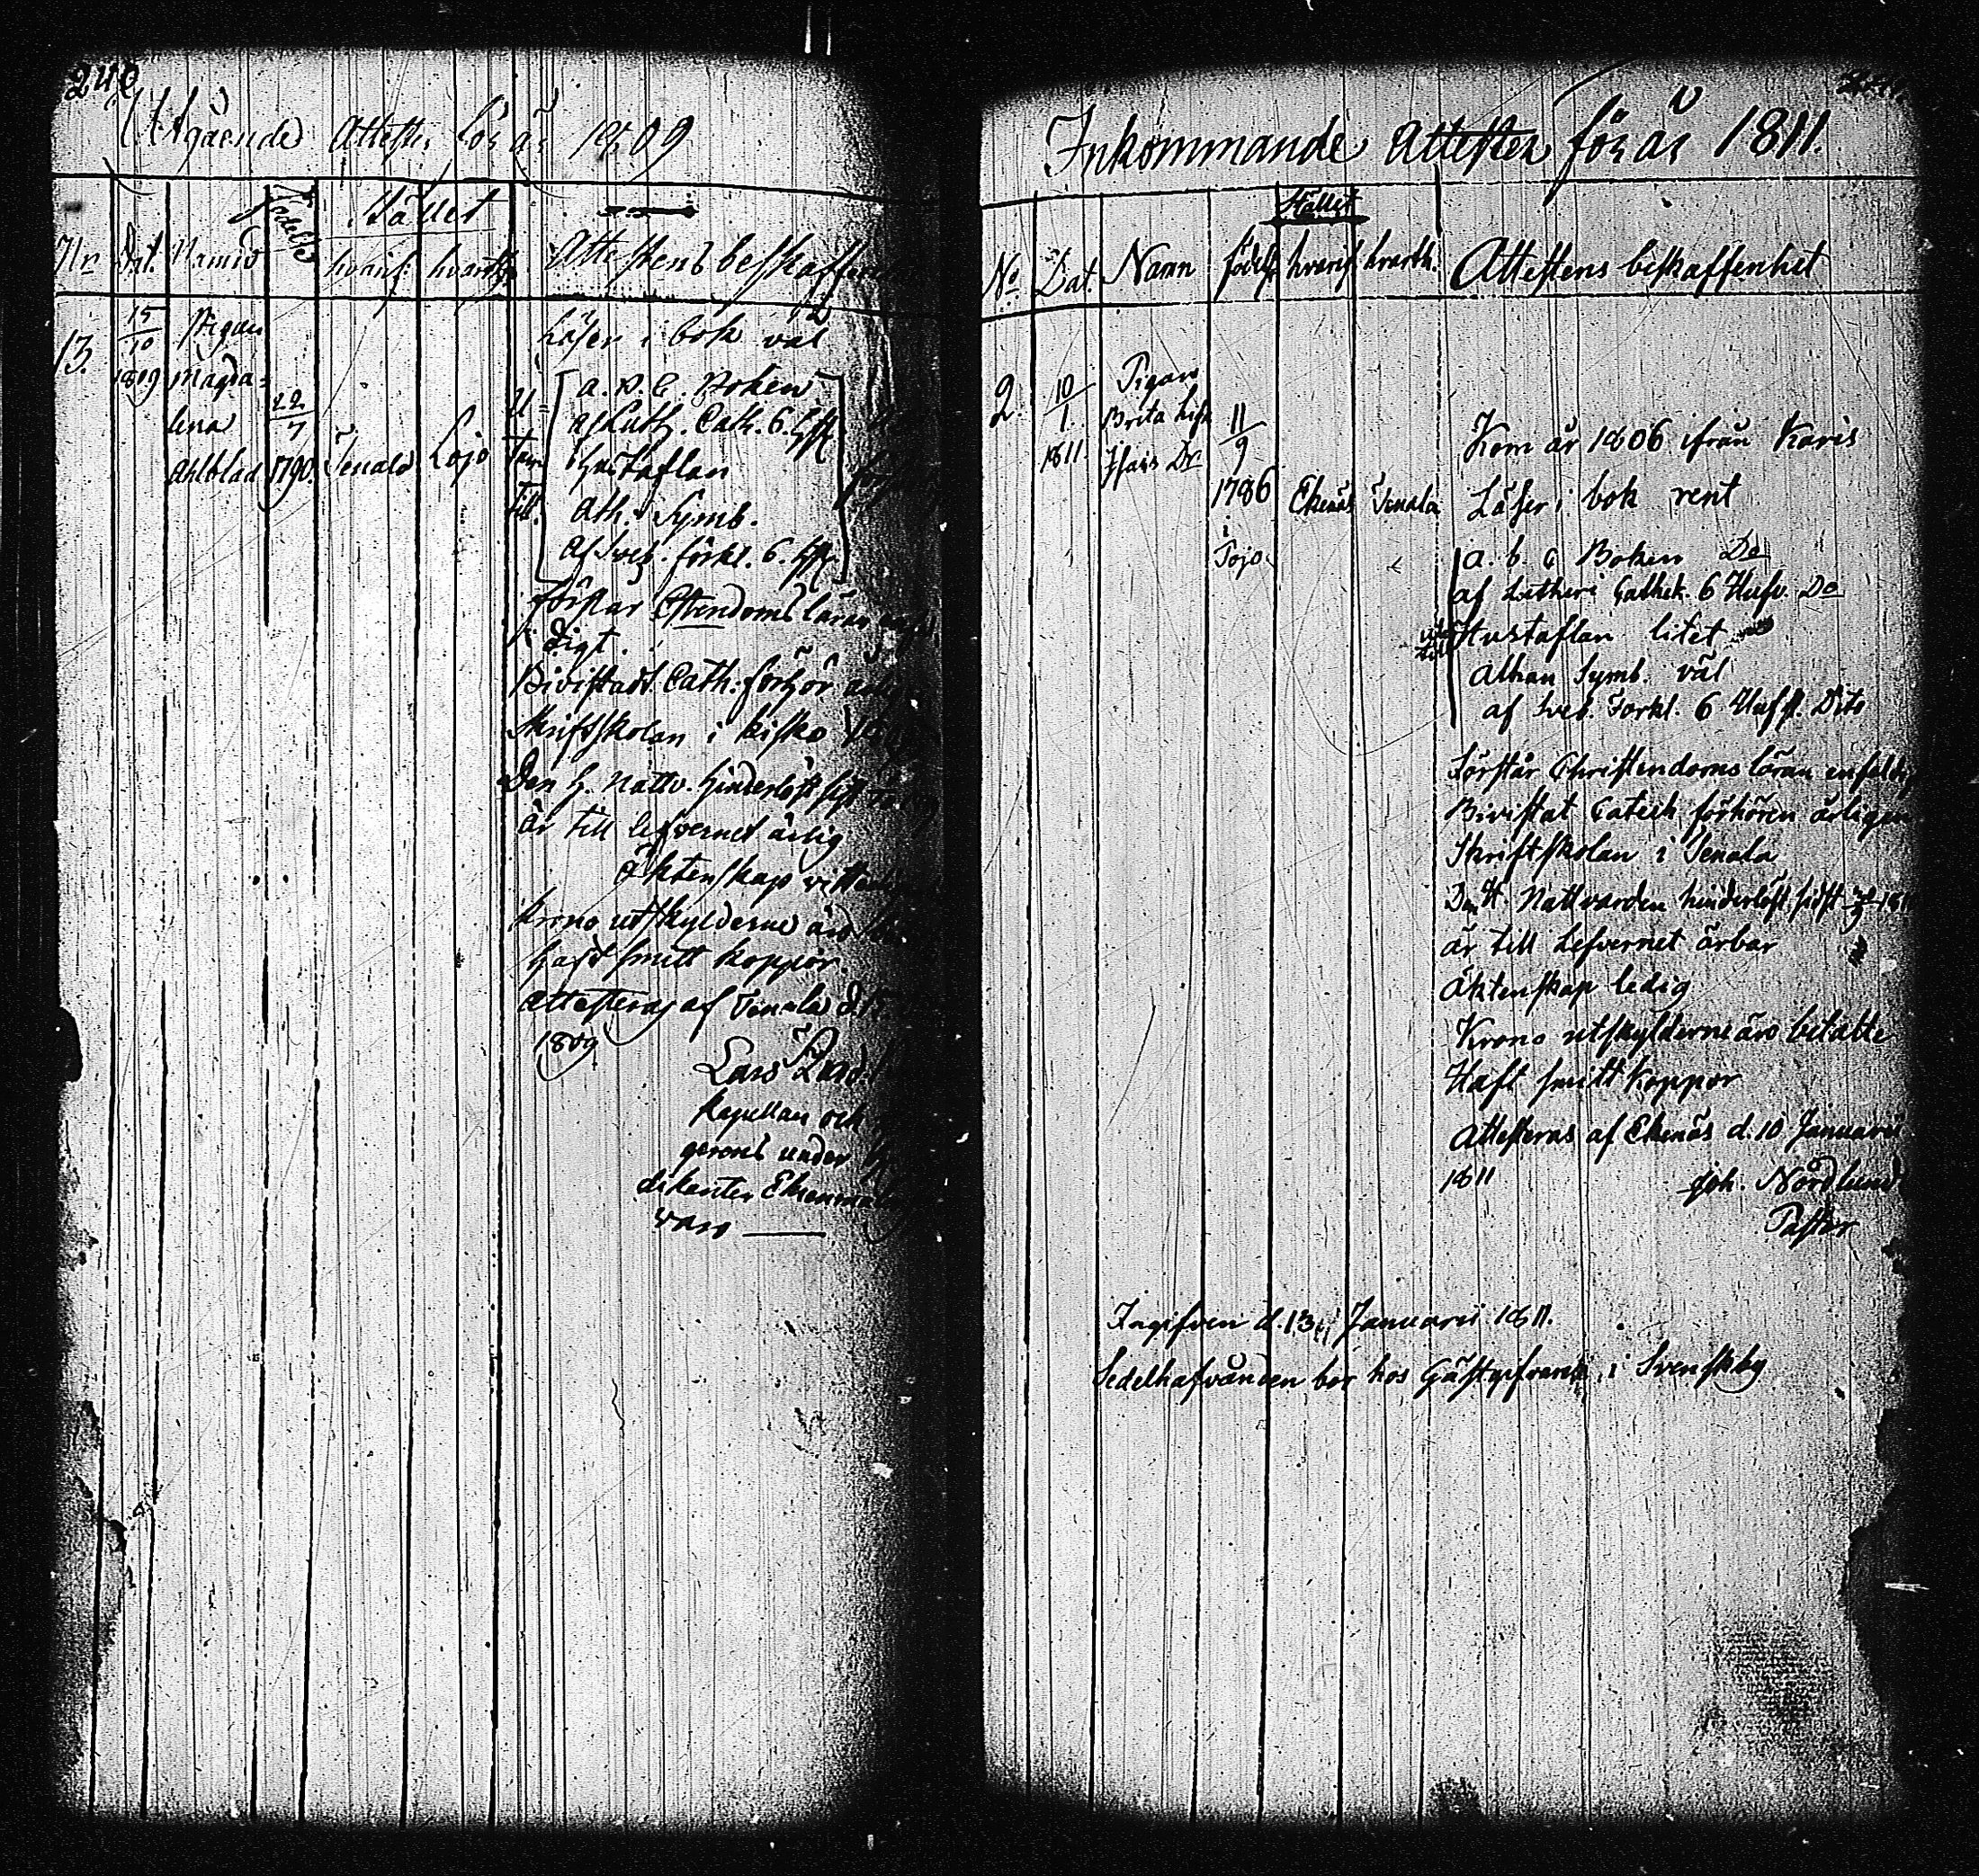 240
Utgående Attester för år 1809
Födelse Stället
Nr Dat. Namn hvarifr. hvarth. Attestens beskaffen
13. 15/10 1809 Pigan Magda=
lena
Ahlblad 22/7 1790. Tenala Lojo
Läser i bok väl
U=
tan=
till.
a. b. c. Boken
af Luth. Cath. 6. Hfst
Hustaflan
Ath. Symb.
af Sveb. förkl. 6. Hfst
förstår Christendoms läran
digt.
Bivistadt Cath: förhör årlig
Skriftskolan i Kisko
Den H. Nattv. hinderlöst sist
är till lefvernet ärlig
Äktenskap
Krono utskylderne äro
haft smitt koppor.
Attesteras af Tenala d. 15
1809
Lars
Kapellan och
under
Ekenäs
Inkommande Attester för år 1811.
Stället
No. Dat. Namn födelse hvarifr. hvarth. Attestens beskaffenhet
2. 10/1. 1811. Pigan
Brita Lisa
Isacs Dr 11/9
1786
i
Pojo Ekenäs Tenala
Kom år 1806 ifrån Karis
Läser i bok rent
a. b. c Boken Do
af Lutheri Cathek. 6 Hufv. Do
utan
till
Hustaflan litet
Athan Symb. väl
af Sveb. Förkl. 6 Hufst. Dito
Förstår Christendoms läran enfaldig
Bivistat Catech förhören årligen
Skriftskolan i Tenala
Den H. Nattvarden hinderlöst sidst
är till Lefvernet ärbar
Äktenskap ledig
Krono utskylderne äro betalte
Haft smitt koppor
Attesteras af Ekenäs d. 10 Januarii
1811 Joh. Nordlund
Pastor
Ingifven d. 13 Januarii 1811.
Sedelhafvanden bor hos Gästgifvaren i Svenskby